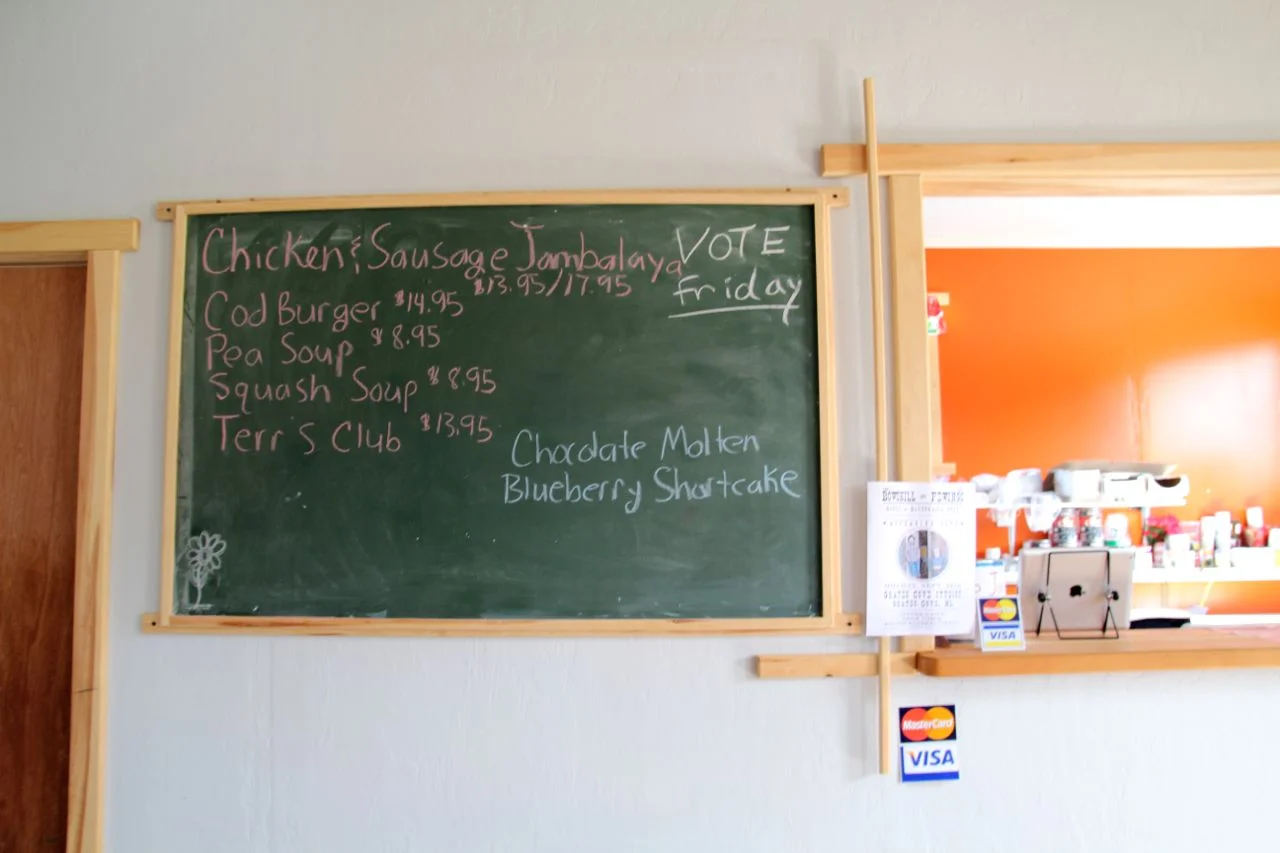 Chicken & Sausage Jambalaya
$13.95/17.95
Cod Burger $14.95
Pea Soup $8.95
Squash Soup $8.95
Terr's Club $13.95
VOTE
Friday
Chocolate Molten
Blueberry Shortcake
MasterCard
VISA
MasterCard
VISA